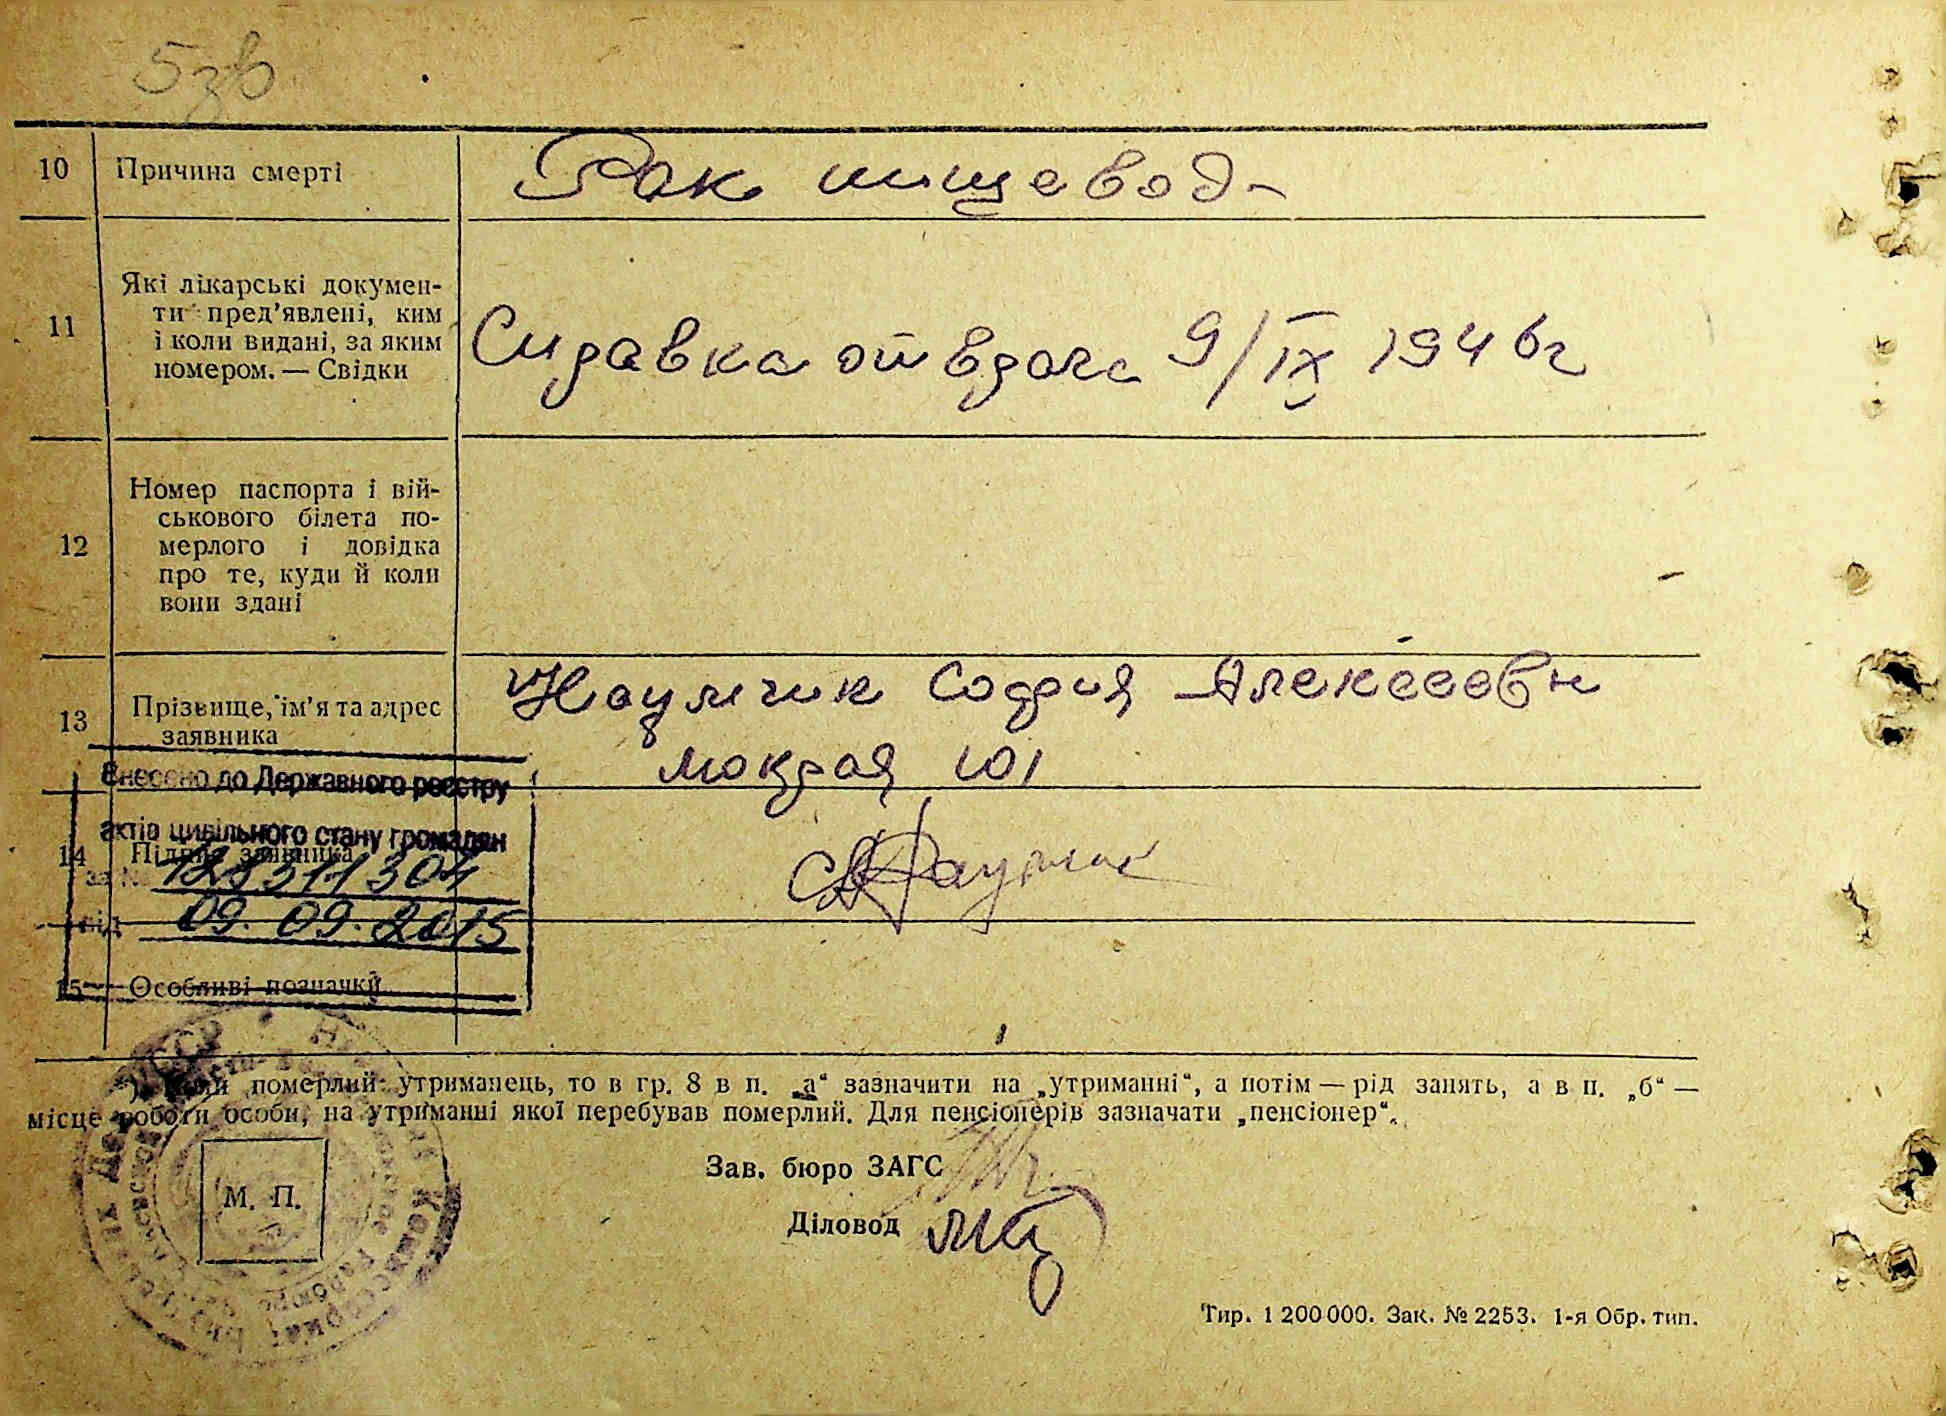 5зв
10 Причина смерті Рак пищевод
11 Які лікарські докумен-
ти пред’явлені, ким
і коли видані, за яким
номером. — Свідки
Справка от врача 9/IX 1946г
12 Номер паспорта і вій-
ськового білета по-
мерлого і довідка
про те, куди й коли
вони здані
13 Прізвище, ім’я та адрес
заявника
Наумчик София Алексеевн
Мокрая 101
Внесено до Державного реєстру
актів цивільного стану громадян
14 Підпис заявника
за № 128311304
від 09.09.2015
15 Особливі позначки
померлий утриманець, то в гр. 8 в п. „а“ зазначити на „утриманні“, а потім — рід занять, а в п. „б“ —
місце роботи особи, на утриманні якої перебував померлий. Для пенсіонерів зазначати „пенсіонер“.
М. П.
Зав. бюро ЗАГС
Діловод
Тир. 1 200 000. Зак. № 2253. 1-я Обр. тип.